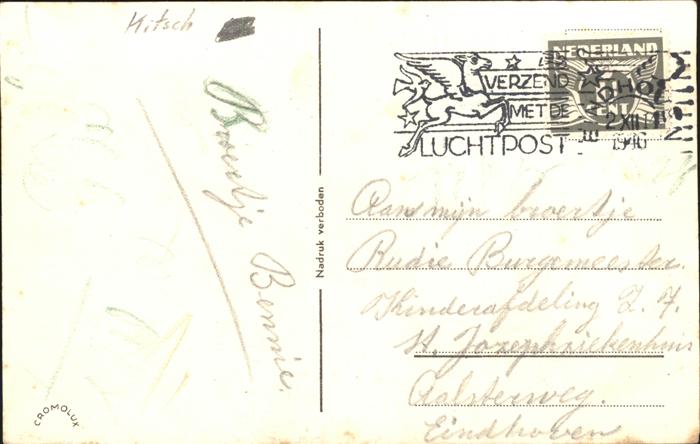 Kitsch
Broertje Bennie.
CROMOLUX
Nadruk verboden
NEDERLAND
VERZEND
MET DE
LUCHTPOST
EINDHOVEN
2 XII
1940
Aan mijn broertje
Rudie Burgemeester.
Kinderafdeling Z. 7.
St. Jozephziekenhuis
Aalsterweg.
Eindhoven